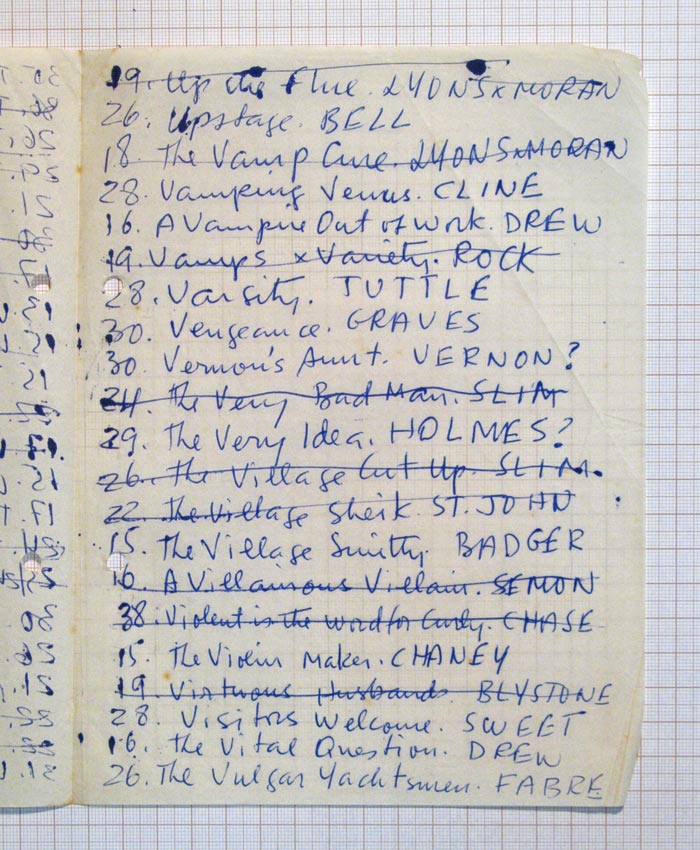 19. Up the Flue. LYONS x MORAN
26. Upstage. BELL
18. The Vamp Cure. LYONS x MORAN
28. Vamping Venus. CLINE
16. A Vampire Out of Work. DREW
19. Vamps x Variety. ROCK
28. Varsity. TUTTLE
30. Vengeance. GRAVES
30. Vernon's Aunt. VERNON?
24. The Very Bad Man. SLIM
29. The Very Idea. HOLMES?
26. The Village Cut Up. SLIM.
22. The Village Sheik. ST. JOHN
15. The Village Smithy. BADGER
16. A Villainous Villain. SEMON
38. Violent is the word for Curly. CHASE
15. The Violin Maker. CHANEY
19. Virtuous Husbands. BLYSTONE
28. Visitors Welcome. SWEET
16. The Vital Question. DREW
26. The Vulgar Yachtsmen. FABRE